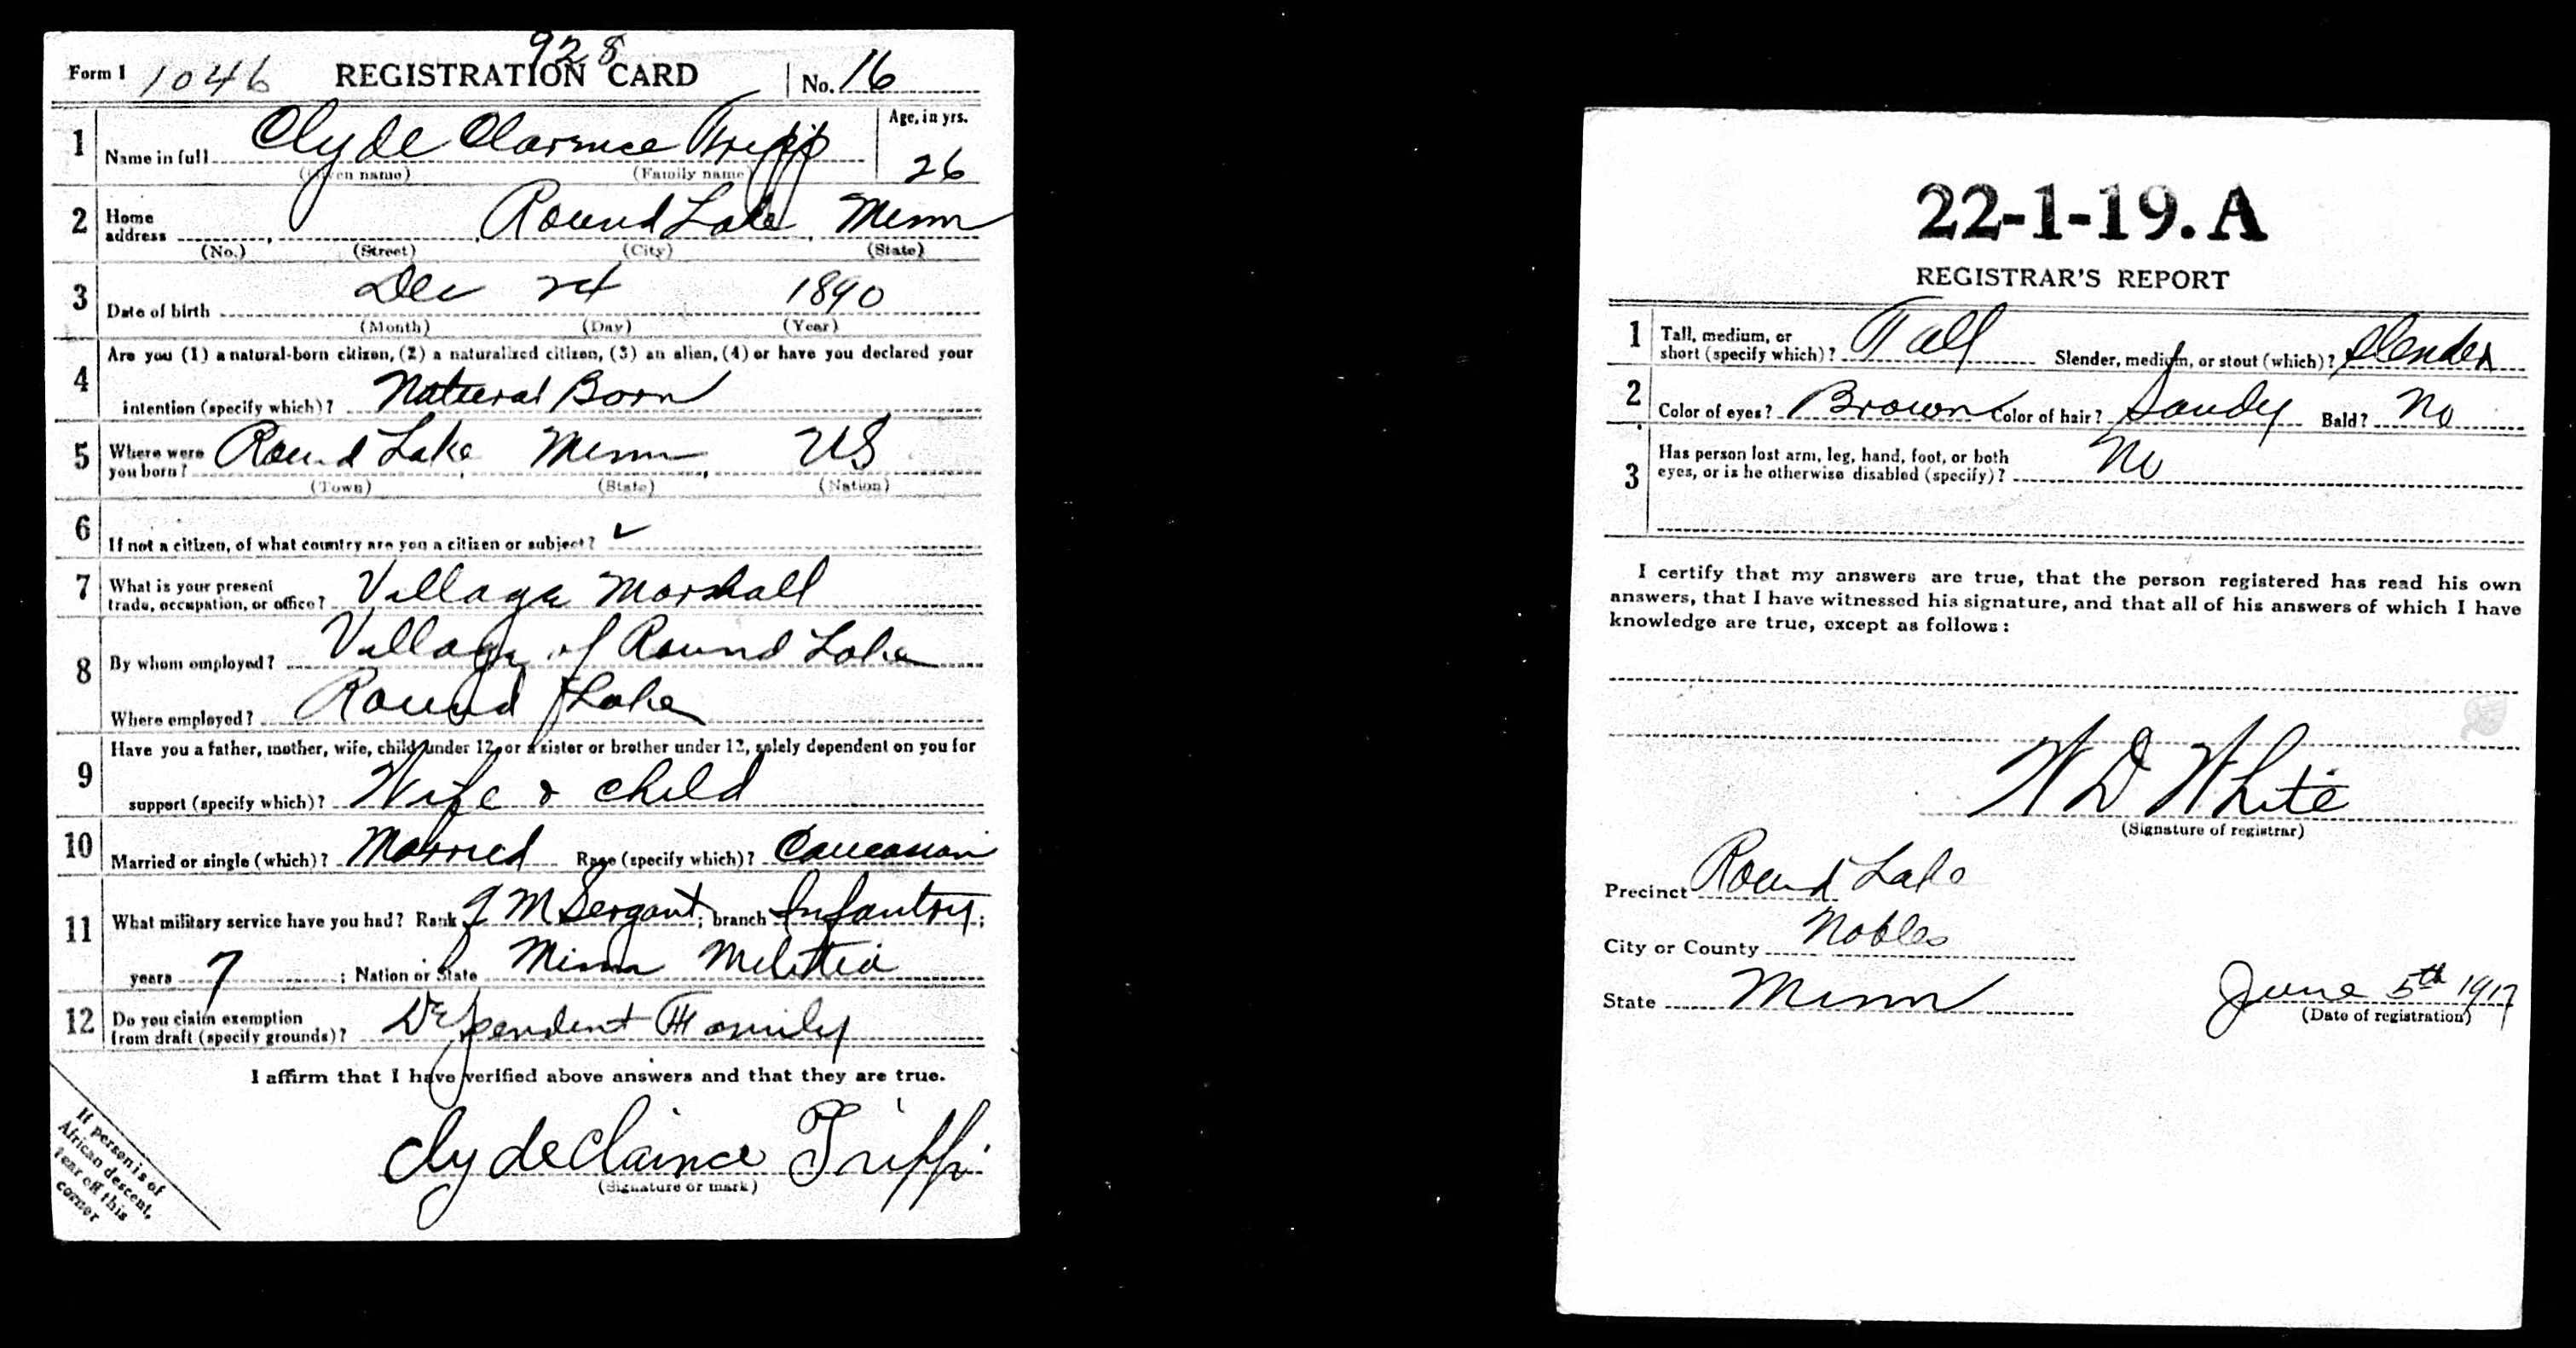 928
Form 1 1046 REGISTRATION CARD No. 16
1 Name in full Clyde Clarence Tripp Age, in yrs. 26
(Given name) (Family name)
2 Home address Round Lake, Minn
(No.) (Street) (City) (State)
3 Date of birth Dec 24 1890
(Month) (Day) (Year)
4 Are you (1) a natural-born citizen, (2) a naturalized citizen, (3) an alien, (4) or have you declared your
intention (specify which)? Natural Born
5 Where were you born? Round Lake, Minn, US
(Town) (State) (Nation)
6 If not a citizen, of what country are you a citizen or subject? ✓
7 What is your present trade, occupation, or office? Village Marshall
8 By whom employed? Village of Round Lake
Where employed? Round Lake
9 Have you a father, mother, wife, child under 12, or a sister or brother under 12, solely dependent on you for
support (specify which)? Wife & child
10 Married or single (which)? Married Race (specify which)? Caucasian
11 What military service have you had? Rank Q M Sergant; branch Infantry;
years 7; Nation or State Minn Melitia
12 Do you claim exemption from draft (specify grounds)? Dependent Family
I affirm that I have verified above answers and that they are true.
Clyde Clarince Tripp
(Signature or mark)
If person is of
African descent,
tear off this
corner
22-1-19. A
REGISTRAR'S REPORT
1 Tall, medium, or short (specify which)? Tall Slender, medium, or stout (which)? Slender
2 Color of eyes? Brown Color of hair? Sandy Bald? No
3 Has person lost arm, leg, hand, foot, or both
eyes, or is he otherwise disabled (specify)? No
I certify that my answers are true, that the person registered has read his own
answers, that I have witnessed his signature, and that all of his answers of which I have
knowledge are true, except as follows:
W D White
(Signature of registrar)
Precinct Round Lake
City or County Nobles
State Minn June 5th 1917
(Date of registration)